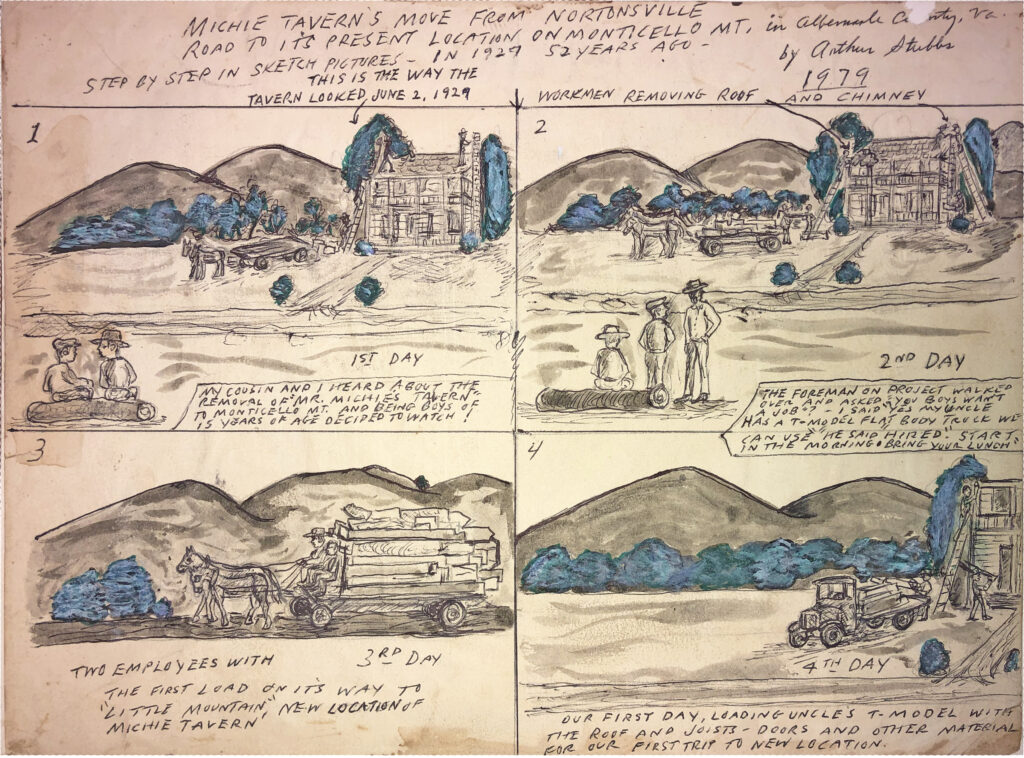 MICHIE TAVERN'S MOVE FROM NORTONSVILLE
ROAD TO IT'S PRESENT LOCATION ON MONTICELLO MT. in Albemarle County, Va.
STEP BY STEP IN SKETCH PICTURES - IN 1927 52 YEARS AGO -
by Arthur Stubbs
1979
THIS IS THE WAY THE
TAVERN LOOKED, JUNE 2, 1927
WORKMEN REMOVING ROOF AND CHIMNEY
1
1ST DAY
MY COUSIN AND I HEARD ABOUT THE
REMOVAL OF "MR. MICHIE'S TAVERN"
TO MONTICELLO MT. AND BEING BOYS OF
15 YEARS OF AGE DECIDED TO WATCH!
2
2ND DAY
THE FOREMAN ON PROJECT WALKED
OVER AND ASKED "YOU BOYS WANT
A JOB"? - I SAID YES MY UNCLE
HAS A T-MODEL FLAT BODY TRUCK WE
CAN USE "HE SAID HIRED". START
IN THE MORNING & BRING YOUR LUNCH
3
3RD DAY
TWO EMPLOYEES WITH
THE FIRST LOAD ON IT'S WAY TO
"LITTLE MOUNTAIN", NEW LOCATION OF
MICHIE TAVERN
4
4TH DAY
OUR FIRST DAY, LOADING UNCLE'S T-MODEL WITH
THE ROOF AND JOISTS - DOORS AND OTHER MATERIAL
FOR OUR FIRST TRIP TO NEW LOCATION.